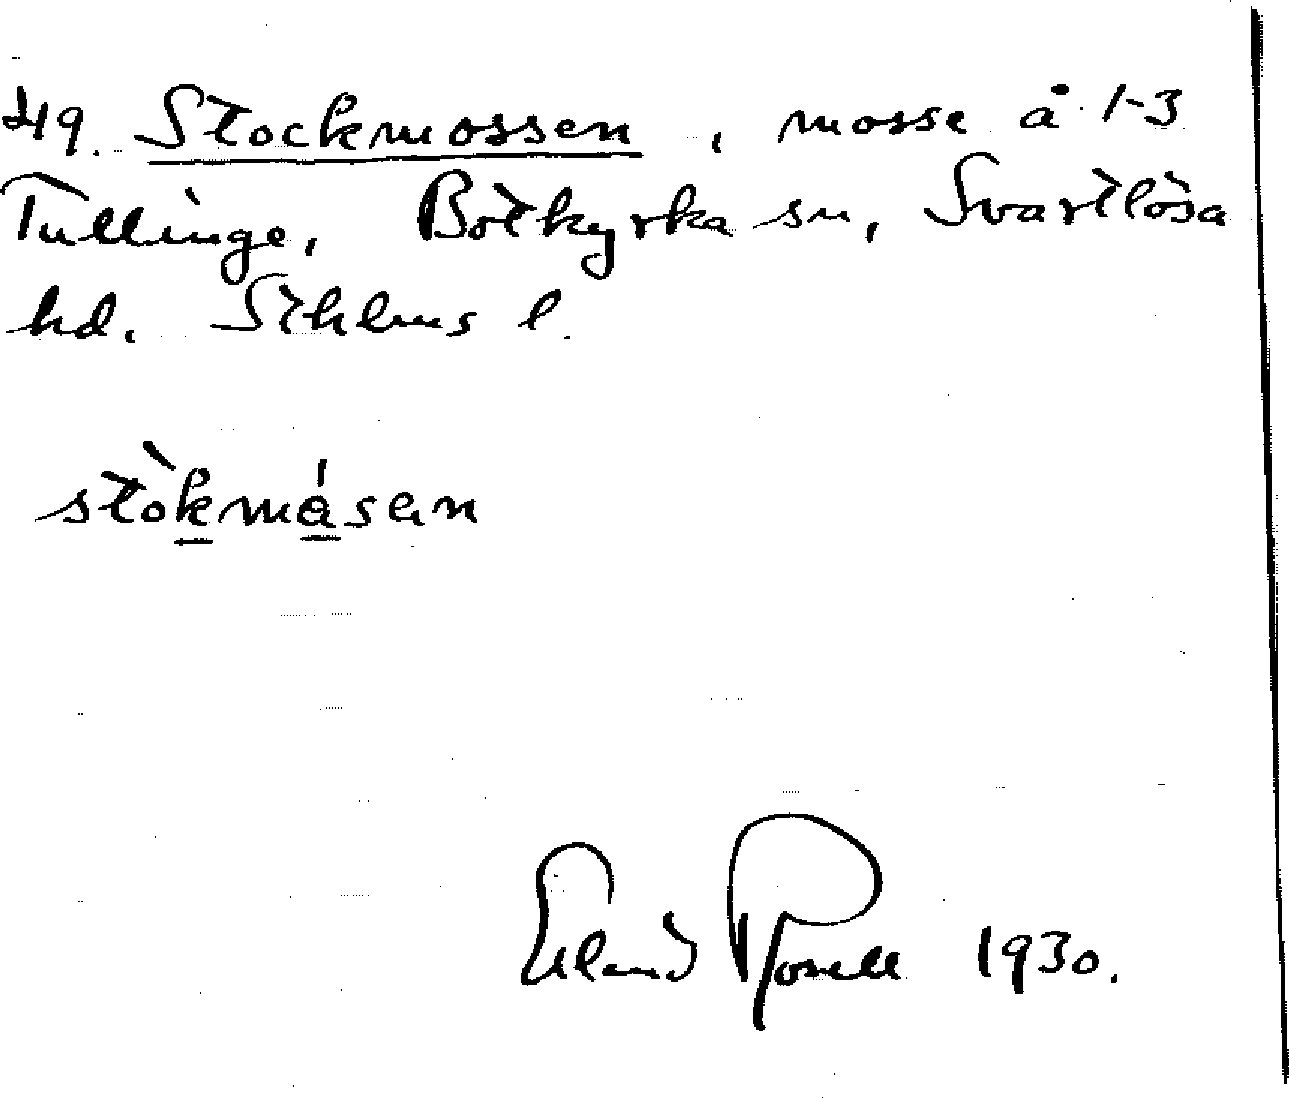 49. Stockmossen, mosse å 1-3
Tullinge, Botkyrka sn, Svartlösa
hd. Sthlms l.
stòkmásen
Erland Rosell 1930.